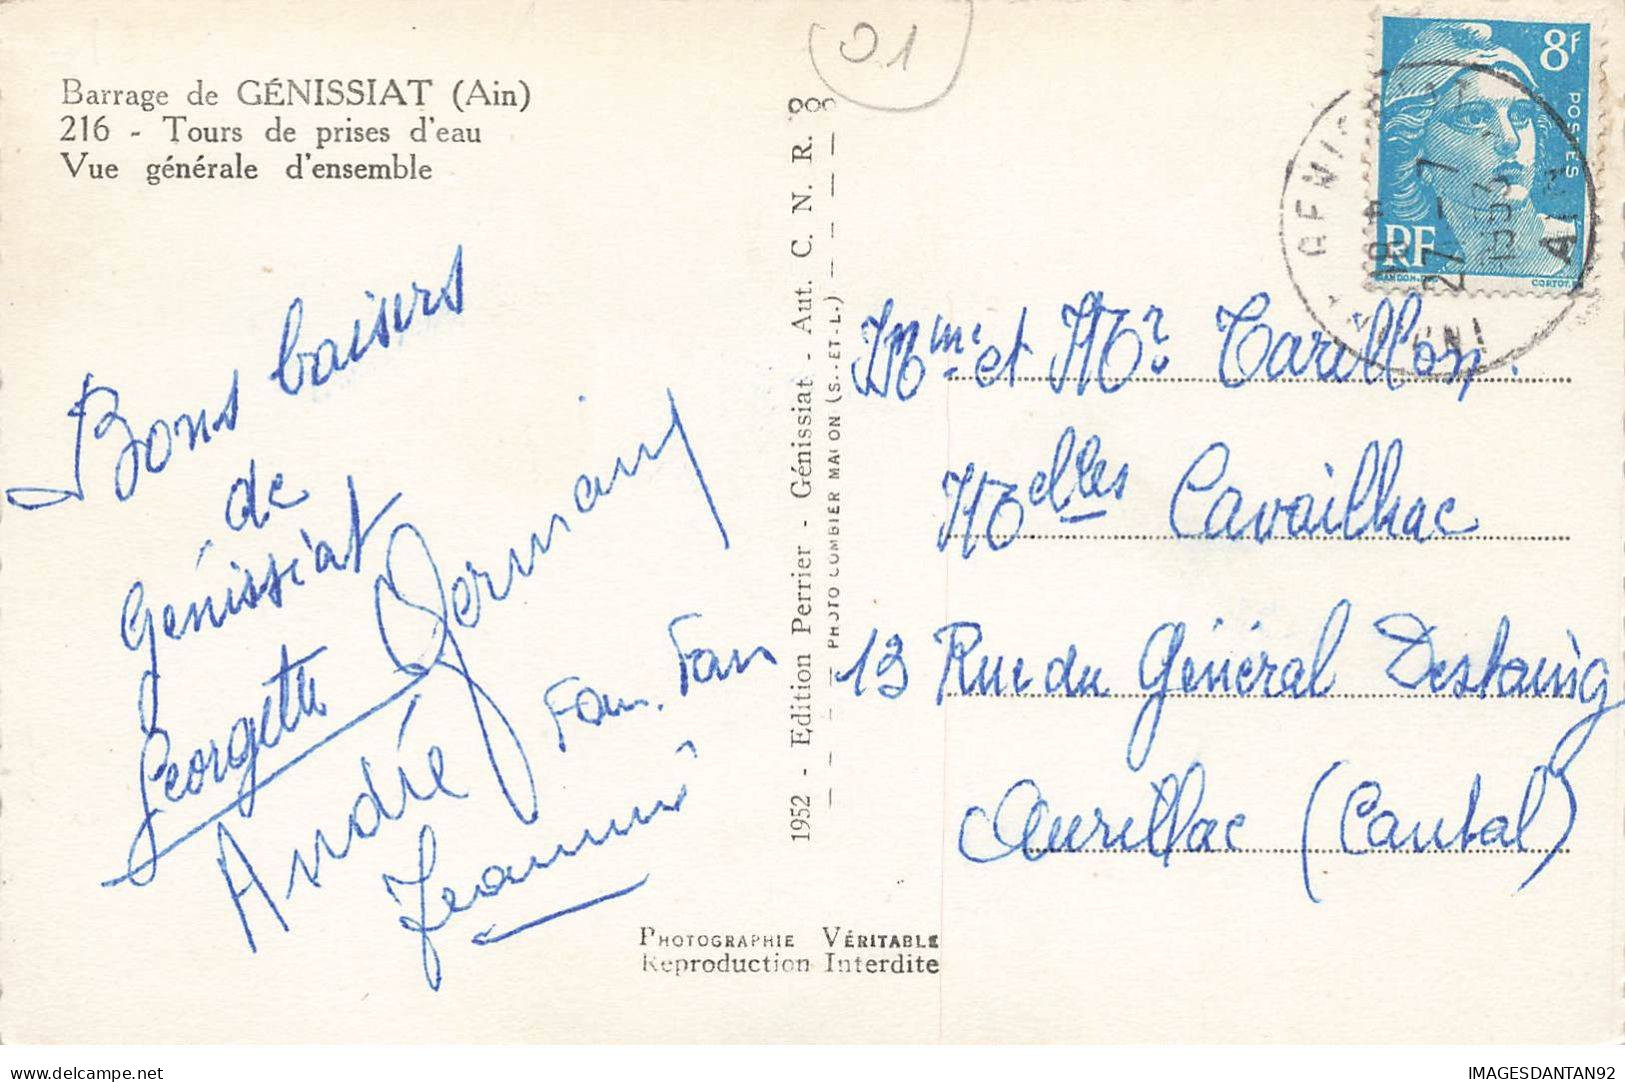 01
Barrage de GÉNISSIAT (Ain)
216 - Tours de prises d'eau
Vue générale d'ensemble
8F
POSTES
RF
CORTOT
18 H
27 - 7
1954
AIN
Bons baisers
de
Génissiat
Georgette Germain
André Fan. Fan
Jeannine
1952 - Edition Perrier - Génissiat - Aut. C. N. R.
PHOTO COMBIER MACON (S.-ET-L.)
Mme et Mr Tarillon.
Melles Cavailhac
13 Rue du Général Destaing
Aurillac (Cantal)
PHOTOGRAPHIE VÉRITABLE
Reproduction Interdite
IMAGESDANTAN92
delcampe.net